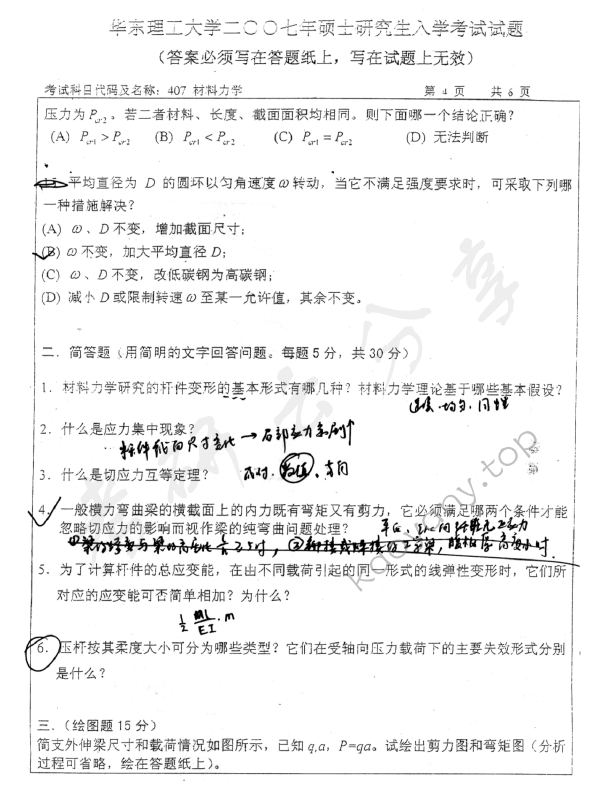 华东理工大学二〇〇七年硕士研究生入学考试试题
(答案必须写在答题纸上，写在试题上无效)
考试科目代码及名称：407 材料力学 第 4 页 共 6 页
压力为 Pcr2。若二者材料、长度、截面面积均相同。则下面哪一个结论正确？
(A) Pcr1 > Pcr2 (B) Pcr1 < Pcr2 (C) Pcr1 = Pcr2 (D) 无法判断
平均直径为 D 的圆环以匀角速度 ω 转动，当它不满足强度要求时，可采取下列哪
一种措施解决？
(A) ω、D 不变，增加截面尺寸；
(B) ω 不变，加大平均直径 D；
(C) ω、D 不变，改低碳钢为高碳钢；
(D) 减小 D 或限制转速 ω 至某一允许值，其余不变。
二．简答题（用简明的文字回答问题。每题 5 分，共 30 分）
1．材料力学研究的杆件变形的基本形式有哪几种？材料力学理论基于哪些基本假设？
连续．均匀．同性
2．什么是应力集中现象？
尺寸变化 → 局部应力急剧↑
3．什么是切应力互等定理？
数值、方向
4．一般横力弯曲梁的横截面上的内力既有弯矩又有剪力，它必须满足哪两个条件才能
忽略切应力的影响而视作梁的纯弯曲问题处理？
5．为了计算杆件的总应变能，在由不同载荷引起的同一形式的线弹性变形时，它们所
对应的应变能可否简单相加？为什么？
1/2 ML/EI · m
6．压杆按其柔度大小可分为哪些类型？它们在受轴向压力载荷下的主要失效形式分别
是什么？
三．（绘图题 15 分）
简支外伸梁尺寸和载荷情况如图所示，已知 q,a，P=qa。试绘出剪力图和弯矩图（分析
过程可省略，绘在答题纸上）。
考研云分享
kaoyany.top